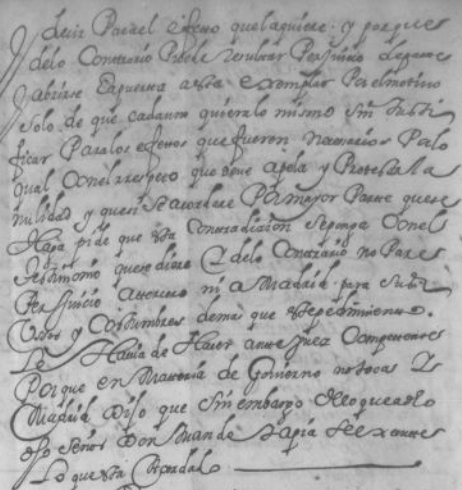 y Luis Para el efetto que la quiere y porque
de lo Contrario Puede resultar Perjuicio de parte
y abrirse la puerta a este exemplar Por el motivo
solo de que cada uno quiera lo mismo sin Justi
ficar Para los efettos que fueron necesarios Por lo
qual Con el respeto que deve apela y Protesta la
nulidad y que si se acordare Por mayor Parte que se
Haga pide que esta Contradizion se ponga Con el
testimonio que se diere y de lo Contrario no Pare
Perjuicio a terzero ni a Madrid para sus
Usos y Costumbres demas que este pedimiento
se Havia de Hazer ante Juez Competente
Porque en Materia de Govierno no toca
Madrid Dijo que sin embargo de lo que a d^ho
d^ho Señor Don Juan de Tapia se execute
Lo que esta acordado